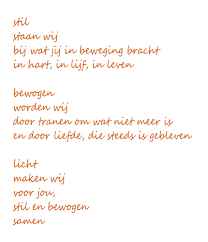 stil
staan wij
bij wat jij in beweging bracht
in hart, in lijf, in leven

bewogen
worden wij
door tranen om wat niet meer is
en door liefde, die steeds is gebleven

licht
maken wij
voor jou,
stil en bewogen
samen